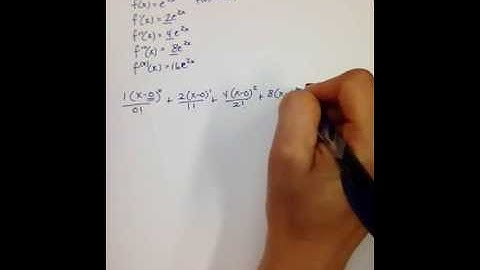 f(x) = e²ˣ
f'(x) = 2e²ˣ
f''(x) = 4e²ˣ
f'''(x) = 8e²ˣ
f⁽⁴⁾(x) = 16e²ˣ
1(x-0)⁰/0! + 2(x-0)¹/1! + 4(x-0)²/2! + 8(x